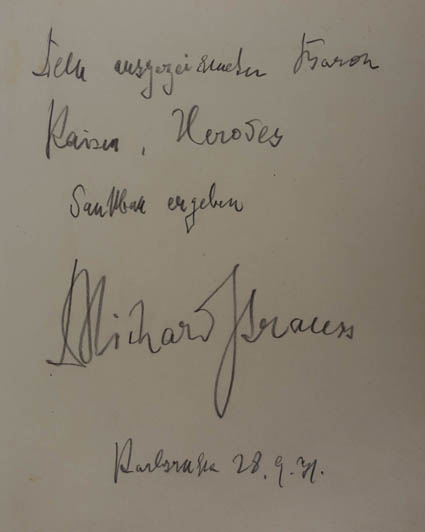 Dem ausgezeichneten Baron
Kaiser, Herodes
dankbar ergeben
DrRichardStrauss
Karlsruhe 28.9.31.